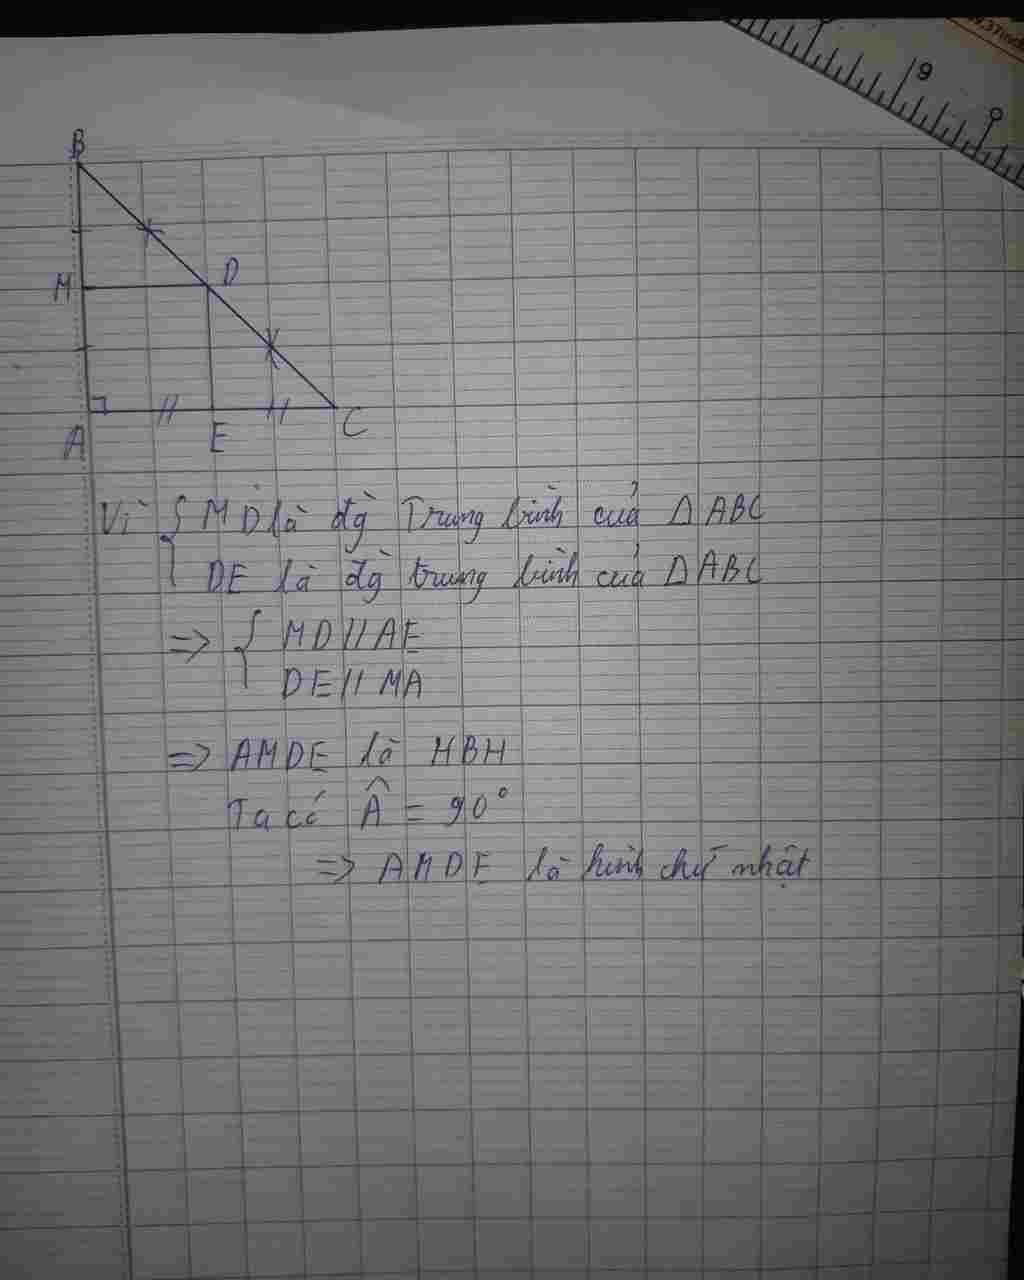 9,37in
9
B
M
D
A
E
C
Vì { MD là đg̀ Trung bình của ΔABC
DE là đg̀ trung bình của ΔABC
=> { MD // AE
DE // MA
=> AMDE là HBH
Ta có Â = 90°
=> AMDE là hình chữ nhật